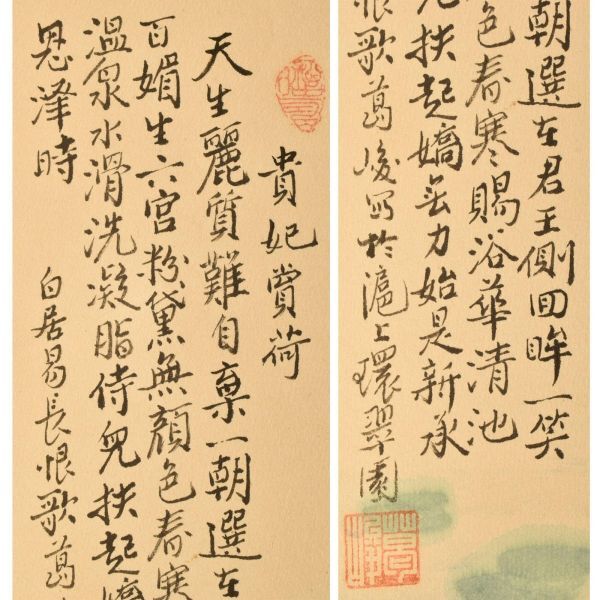 貴妃賞荷
天生麗質難自棄一朝選在
百媚生六宮粉黛無顏色春寒
溫泉水滑洗凝脂侍兒扶起嬌
恩澤時
白居易長恨歌葛
朝選在君王側回眸一笑
色春寒賜浴華清池
兒扶起嬌無力始是新承
恨歌葛峻寫於滬上環翠園